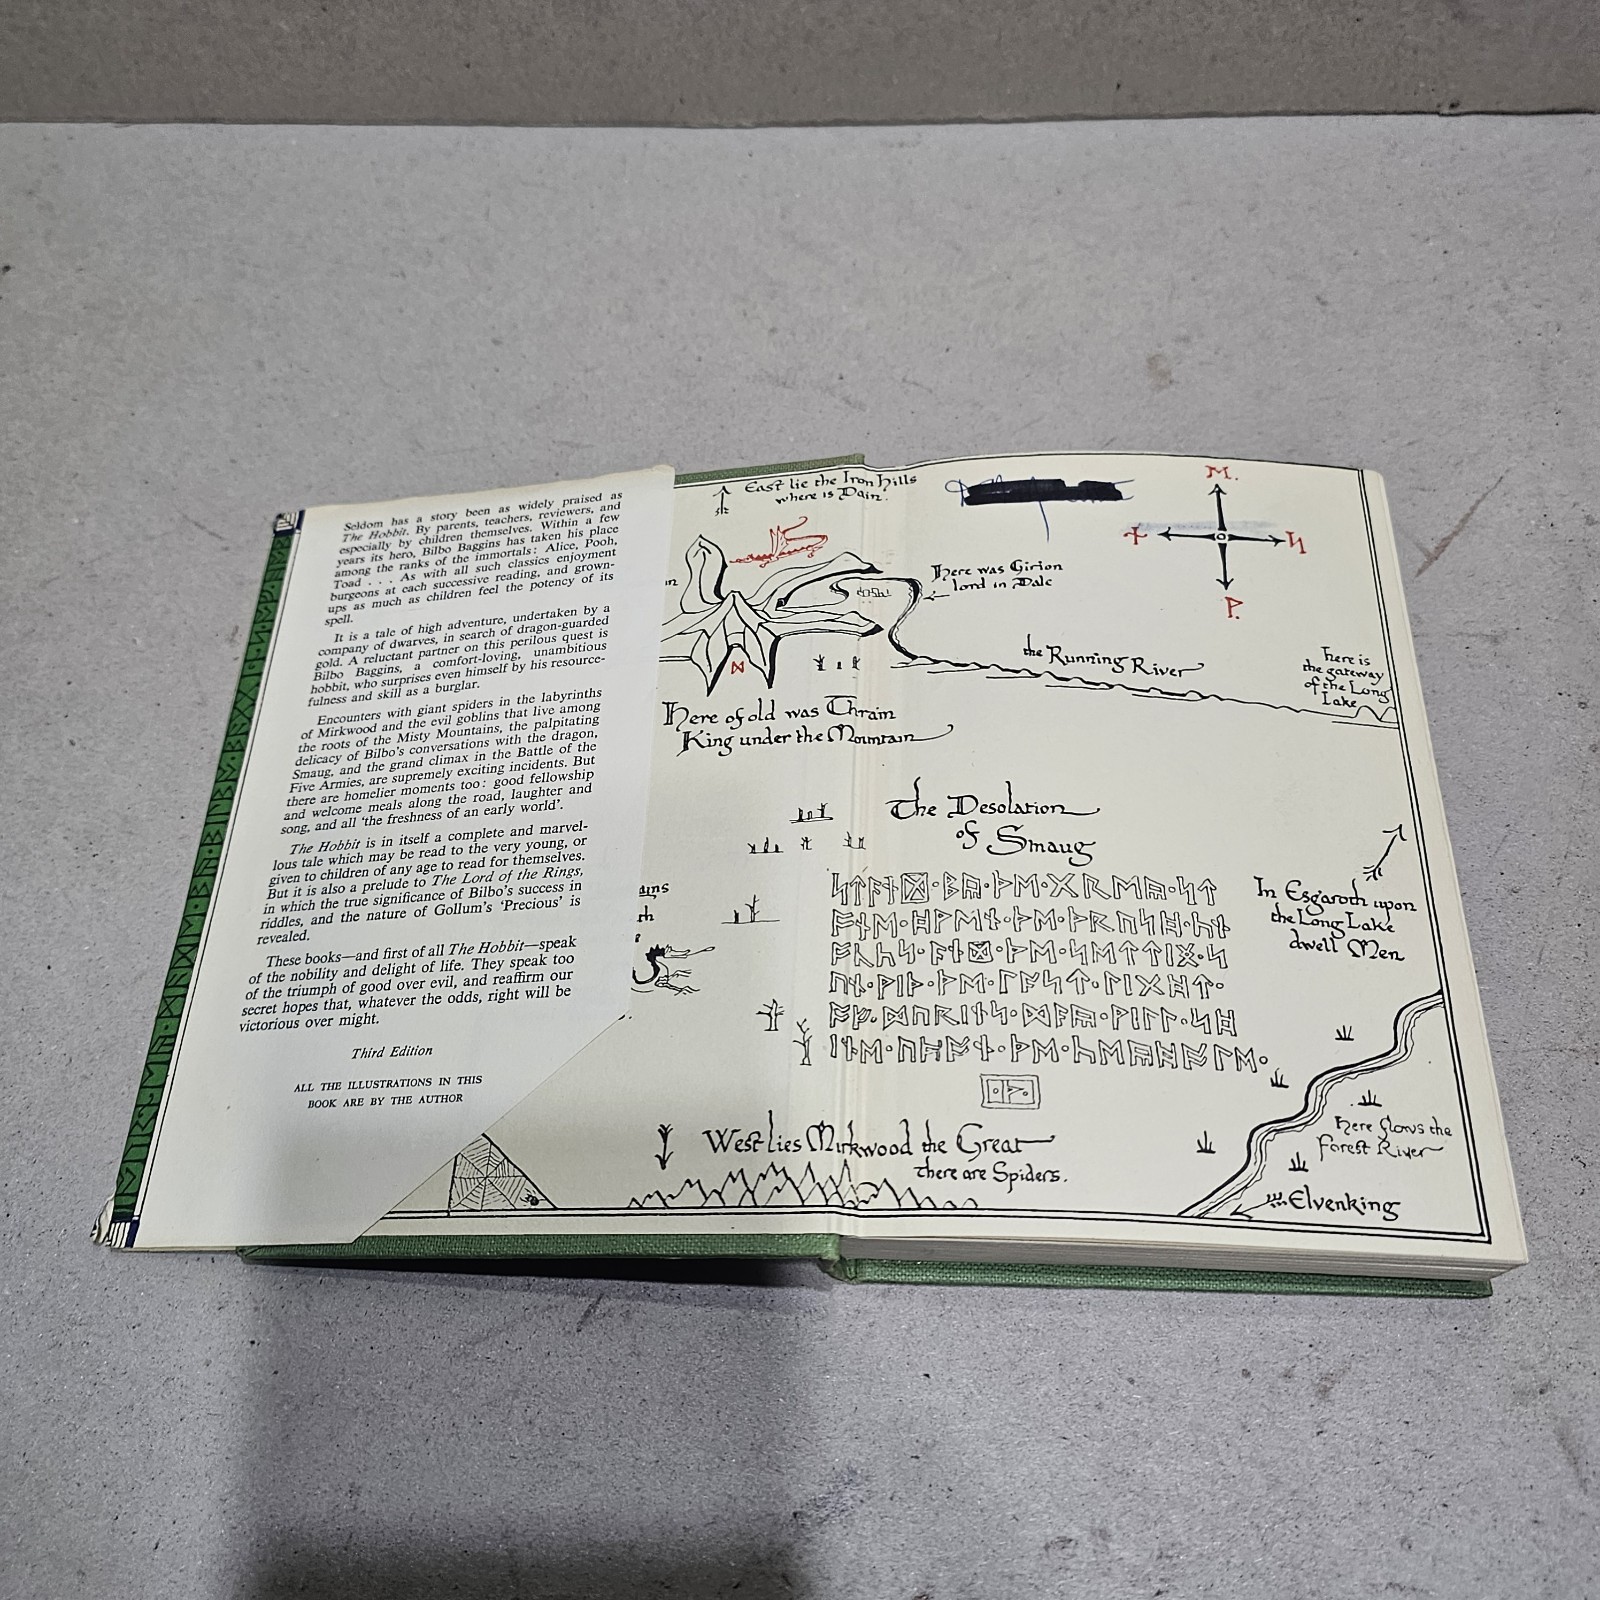 Seldom has a story been as widely praised as
The Hobbit. By parents, teachers, reviewers, and
especially by children themselves. Within a few
years its hero, Bilbo Baggins has taken his place
among the ranks of the immortals: Alice, Pooh,
Toad . . . As with all such classics enjoyment
burgeons at each successive reading, and grown-
ups as much as children feel the potency of its
spell.
It is a tale of high adventure, undertaken by a
company of dwarves, in search of dragon-guarded
gold. A reluctant partner on this perilous quest is
Bilbo Baggins, a comfort-loving, unambitious
hobbit, who surprises even himself by his resource-
fulness and skill as a burglar.
Encounters with giant spiders in the labyrinths
of Mirkwood and the evil goblins that live among
the roots of the Misty Mountains, the palpitating
delicacy of Bilbo's conversations with the dragon,
Smaug, and the grand climax in the Battle of the
Five Armies, are supremely exciting incidents. But
there are homelier moments too: good fellowship
and welcome meals along the road, laughter and
song, and all 'the freshness of an early world'.
The Hobbit is in itself a complete and marvel-
lous tale which may be read to the very young, or
given to children of any age to read for themselves.
But it is also a prelude to The Lord of the Rings,
in which the true significance of Bilbo's success in
riddles, and the nature of Gollum's 'Precious' is
revealed.
These books—and first of all The Hobbit—speak
of the nobility and delight of life. They speak too
of the triumph of good over evil, and reaffirm our
secret hopes that, whatever the odds, right will be
victorious over might.
Third Edition
ALL THE ILLUSTRATIONS IN THIS
BOOK ARE BY THE AUTHOR
East lie the Iron Hills
where is Dain.
Here was Girion
lord in Dale
the Running River
Here is
the gateway
of the Long
Lake
Here of old was Thrain
King under the Mountain
The Desolation
of Smaug
ᛋᛏᚪᚾᛞ·ᛒᚣ·ᚦᛖ·ᚷᚱᛖᚣ·ᛋᛏ
ᚩᚾᛖ·ᚻᚹᛖᚾ·ᚦᛖ·ᚦᚱᚢᛋᚻ·ᚳᚾ
ᚩᚳᛋ·ᚪᚾᛞ·ᚦᛖ·ᛋᛖᛏᛏᛁᛝ·ᛋ
ᚢᚾ·ᚹᛁᚦ·ᚦᛖ·ᛚᚪᛋᛏ·ᛚᛁᚷᚻᛏ·
ᚩᚠ·ᛞᚢᚱᛁᚾᛋ·ᛞᚪᚣ·ᚹᛁᛚᛚ·ᛋᚻ
ᛁᚾᛖ·ᚢᛈᚩᚾ·ᚦᛖ·ᚳᛖᚣᚻᚩᛚᛖ·
·ᚦ·
In Esgaroth upon
the Long Lake
dwell Men
West lies Mirkwood the Great
there are Spiders.
Here flows the
Forest River
Elvenking